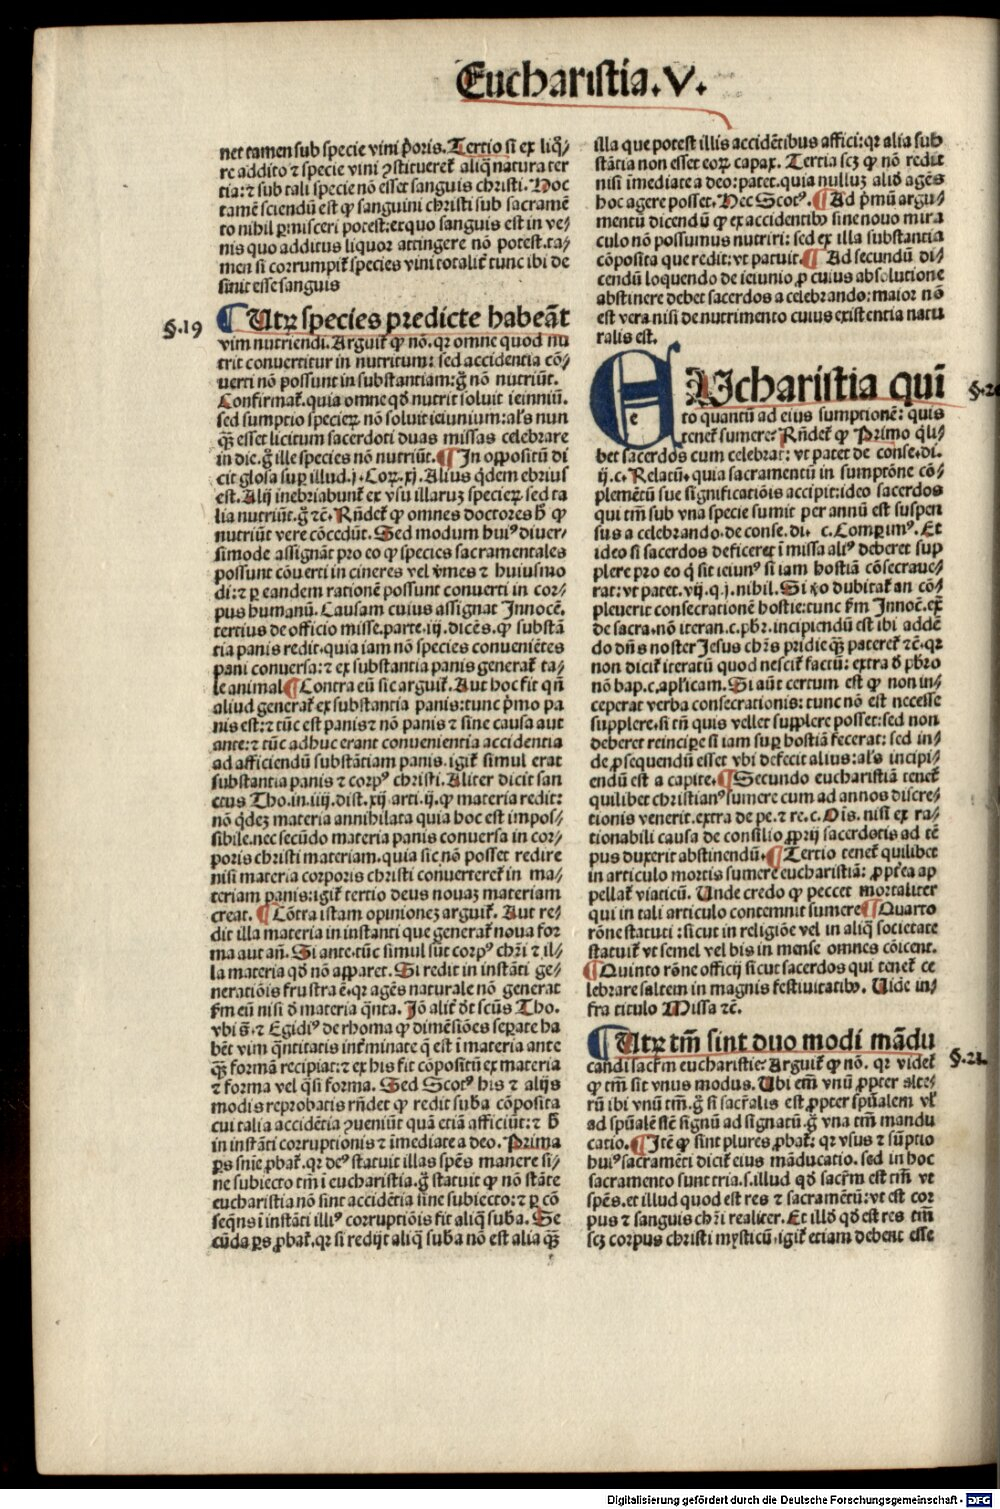 Eucharistia.V.
net tamen sub specie vini p̄oris. Tertio si ex liq̄⸗
re addito ⁊ specie vini ꝯstitueret᷑ aliq̄ natura ter
tia: ⁊ sub tali specie nō esset sanguis christi. Hoc
tamē sciendū est ꝙ sanguini christi sub sacramē
to nihil ꝑmisceri potest: et quo sanguis est in ve⸗
nis quo additus liquor attingere nō potest. ta⸗
men si corrumpit᷑ species vini totalit᷑ tunc ibi de
sinit esse sanguis
§.19
¶ Utrꝝ species predicte habeāt
vim nutriendi. Arguit᷑ ꝙ nō. qꝛ omne quod nu
trit convertitur in nutritum: sed accidentia cō⸗
verti nō possunt in substantiam: g̊ nō nutriūt.
Confirmat᷑. quia omne qđ nutrit soluit ieiuniū.
sed sumptio specieꝝ nō soluit ieiunium: al's nun
qȝ esset licitum sacerdoti duas missas celebrare
in die. g̊ ille species nō nutriūt. ¶ In oppositū di
cit glosa suꝑ illud. j. Coꝝ. xj. Alius qđem ebrius
est. Alij inebriabunt᷑ ex vsu illaruȝ specieꝝ sed ta
lia nutriūt. g̊ ⁊c̄. Rn̄det᷑ ꝙ omnes doctores h̄ ꝙ
nutriūt vere cōcedūt. Sed modum huiꝰ diuer⸗
simode assignāt pro eo ꝙ species sacramentales
possunt cōuerti in cineres vel v̓mes ⁊ huiusmo
di: ⁊ ꝑ eandem rationē possunt converti in cor⸗
pus humanū. Causam cuius assignat Innocē.
tertius de officio misse. parte. iij. dicēs. ꝙ substā
tia panis redit. quia iam nō species conueniētes
pani conversa: ⁊ ex substantia panis generat᷑ ta⸗
le animal ¶ Contra eū sic arguit᷑. Aut hoc fit qn̄
aliud generat᷑ ex substantia panis: tunc p̄mo pa
nis est: ⁊ tūc est panis ⁊ nō panis ⁊ sine causa aut
ante: ⁊ tūc adhuc erant convenientia accidentia
ad afficiendū substātiam panis. igit᷑ simul erat
substantia panis ⁊ corpꝰ christi. Aliter dicit san
ctus Tho. in. iiij. dist. xij. arti. ij. ꝙ materia redit:
nō q̄deȝ materia annihilata quia hoc est impos⸗
sibile. nec secūdo materia panis conversa in cor⸗
poris christi materiam. quia sic nō posset redire
nisi materia corporis christi converteret᷑ in ma⸗
teriam panis: igit᷑ tertio deus nouaȝ materiam
creat. ¶ Cōtra istam opinioneȝ arguit᷑. Aut re⸗
dit illa materia in instanti quo generat᷑ noua for
ma aut an̄. Si ante. tūc simul sūt corpꝰ chr̄i ⁊ il⸗
la materia qđ nō apparet. Si redit in instāti ge⸗
neratiōis frustra ē. qꝛ agēs naturale nō generat
fm̄ eū nisi đ materia q̄nta. Jō alit᷑ đt scūs Tho.
vbi s̄. ⁊ Egidiꝰ de rhoma ꝙ dimēsiōes sep̄ate ha
bēt vim q̄ntitatis int᷑minate q̄ est ī materia ante
qȝ formā recipiat: ⁊ ex his fit cōpositū ex materia
⁊ forma vel q̄si forma. Sed Scotꝰ his ⁊ alijs
modis reprobatis rn̄det ꝙ redit sub̄a cōposita
cui talia accidētia ꝯueniūt quā etiā afficiūt: ⁊ h̄
in instāti corruptionis ⁊ īmediate a deo. Prima
ꝑs sn̄ie ꝓbat᷑. qꝛ deꝰ statuit illas spēs manere si⸗
ne subiecto tm̄ ī eucharistia. g̊ statuit ꝙ nō stāte
eucharistia nō sint accidētia sine subiecto: ⁊ ꝑ cō
seq̄ns ī instāti illiꝰ corruptiōis fit aliq̄ sub̄a. Se
cūda ꝑs ꝓbat᷑. qꝛ si redijt aliq̄ sub̄a nō est alia qȝ
illa que potest illis accidētibus affici: qꝛ alia sub
stātia non esset eoꝝ capax. Tertia scȝ ꝙ nō redit
nisi īmediate a deo: patet. quia nulluȝ aliđ agēs
hoc agere posset. Hec Scotꝰ. ¶ Ad p̄mū argu⸗
mentū dicendū ꝙ ex accidentibꝰ sine nouo mira
culo nō possumus nutriri: sed ex illa substantia
cōposita que redit: vt patuit. ¶ Ad secundū di⸗
cendū loquendo de ieiunio ꝓ cuius absolutione
abstinere debet sacerdos a celebrando: maior nō
est vera nisi de nutrimento cuius existentia natu
ralis est.
§.20
EUcharistia qui
e
to quantū ad eius sumptionē: quis
tenet᷑ sumere? Rn̄det᷑ ꝙ Primo q̄li⸗
bet sacerdos cum celebrat: vt patet de conse. di.
ij. c. Relatū. quia sacramentū in sumptōne cō⸗
plemētū sue significatiōis accipit: ideo sacerdos
qui tm̄ sub vna specie sumit per annū est suspen
sus a celebrando. de conse. di. c. Comperimꝰ. Et
ideo si sacerdos deficeret ī missa aliꝰ deberet sup
plere pro eo q̄ sit ieiunꝰ si iam hostiā cōsecraue⸗
rat: vt patet. vij. q. j. nihil. Si v̓o dubitat᷑ an cō⸗
pleuerit consecrationē hostie: tunc fm̄ Innoc̄. ex̄
de sacra. nō iteran. c. pb̄r. incipiendū est ibi addē
do dn̄s noster Jesus chr̄s pridie qȝ pateret᷑ ⁊c̄. qꝛ
non dicit᷑ iteratū quod nescit᷑ factū: extra đ pb̄ro
nō bap. c. apl'icam. Si aūt certum est ꝙ non in⸗
ceperat verba consecrationis: tunc nō est necesse
supplere. si tn̄ quis vellet supplere posset: sed non
deberet reincipere si iam suꝑ hostiā fecerat: sed in⸗
de ꝓsequendū esset vbi defecit alius: al's incipi⸗
endū est a capite. ¶ Secundo eucharistiā tenet᷑
quilibet christianꝰ sumere cum ad annos discre⸗
tionis venerit. extra de pe. ⁊ re. c. Oīs. nisi ex ra⸗
tionabili causa de consilio ꝓprij sacerdotis ad tē
pus duxerit abstinendū. ¶ Tertio tenet᷑ quilibet
in articulo mortis sumere eucharistiā: ꝓpt̓ea ap
pellat᷑ viaticū. Unde credo ꝙ peccet mortaliter
qui in tali articulo contemnit sumere ¶ Quarto
rōne statuti: sicut in religiōe vel in aliq̄ societate
statuit᷑ vt semel vel bis in mense omnes cōicent.
¶ Quinto rōne officij sicut sacerdos qui tenet᷑ ce
lebrare saltem in magnis festiuitatibꝰ. Uide in⸗
fra titulo Missa ⁊c̄.
§.21
¶ Utrꝝ tm̄ sint duo modi mādu
candi sacr̄m eucharistie. Arguit᷑ ꝙ nō. qꝛ videt᷑
ꝙ tm̄ sit vnus modus. Ubi em̄ vnū ꝓpter alte⸗
rū ibi vnū tm̄. g̊ si sacr̄alis est ꝓpter spūalem vl'
ad spūalē stē signū ad signatū. g̊ vna tm̄ mandu
catio. ¶ Itē ꝙ sint plures ꝓbat᷑: qꝛ vsus ⁊ sūptio
huiꝰ sacramēti dicit᷑ eius māducatio. sed in hoc
sacramento sunt tria. s. illud qđ sacr̄m est tm̄ vt
spēs. et illud quod est res ⁊ sacramētū: vt est cor
pus ⁊ sanguis chr̄i realiter. Et illđ qđ est res tm̄
scȝ corpus christi mysticū. igit᷑ etiam debent esse
Digitalisierung gefördert durch die Deutsche Forschungsgemeinschaft - DFG